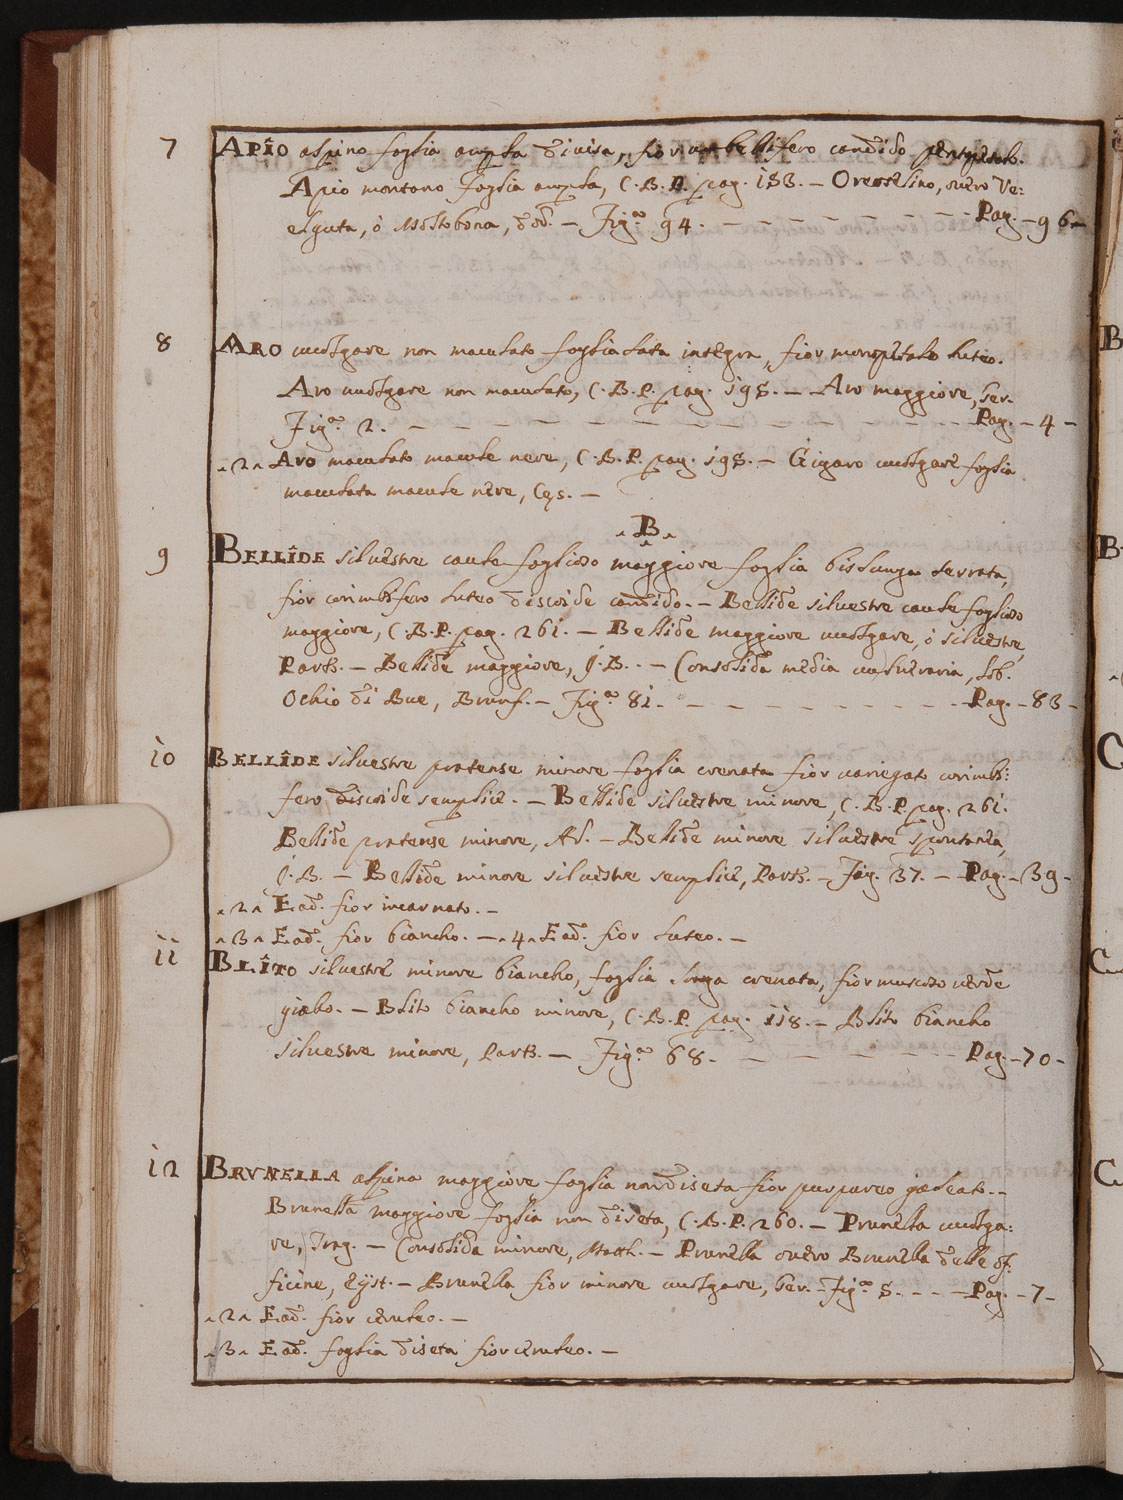 7 APIO alpino foglia ampla divisa, fior umbellifero candido pentapetalo.
Apio montano foglia ampla, C. B. P. pag. 153. – Oreoselino, overo Ve:
elguta, ò Moltobona, Dod. – Fig.ª 94. – – – – – – – – Pag. – 96 –
8 ARO vulgare non maculato foglia lata integra, fior monopetalo luteo.
Aro vulgare non maculato, C. B. P. pag. 195. – Aro maggiore, Ger.
Fig.ª 2. – – – – – – – – – – – – – – Pag. – 4 –
^2^ Aro maculato macule nere, C. B. P. pag. 195. – Gigaro vulgare foglia
maculata macule nere, Ces. –
^B^
9 BELLIDE silvestre caule foglioso maggiore foglia bislunga serrata,
fior corimbifero luteo discoide candido. – Bellide silvestre caule foglioso
maggiore, C. B. P. pag. 261. – Bellide maggiore vulgare, ò silvestre,
Park. – Bellide maggiore, J. B. – Consolida media vulneraria, Lob.
Ochio di Bue, Brunf. – Fig.ª 81. – – – – – – – – – Pag. – 83 –
10 BELLIDE silvestre pratense minore foglia crenata fior variegato corimbi:
fero discoide semplice. – Bellide silvestre minore, C. B. P. pag. 261.
Bellide pratense minore, – Bellide minore silvestre spontanea,
J. B. – Bellide minore silvestre semplice, Park. – Fig. 37. – Pag. – 39 –
^2^ Ead. fior incarnato. –
^3^ Ead. fior biancho. – ^4^ Ead. fior luteo. –
11 BLITO silvestre minore biancho, foglia lunga crenata, fior muscoso verde
giallo. – Blito biancho minore, C. B. P. pag. 118. – Blito biancho
silvestre minore, Park. – Fig.ª 68. – – – – – – – Pag. – 70 –
12 BRVNELLA alpina maggiore foglia non diseta fior purpureo galeato. –
Brunella maggiore foglia non diseta, C. B. P. 260. – Prunella vulga:
re, Trag. – Consolida minore, Matth. – Prunella overo Brunella delle of:
ficine, Eÿst. – Brunella fior minore vulgare, Ger. – Fig.ª 5. – – – Pag. – 7 –
^2^ Ead. fior ceruleo. –
^3^ Ead. foglia diseta fior ceruleo. –